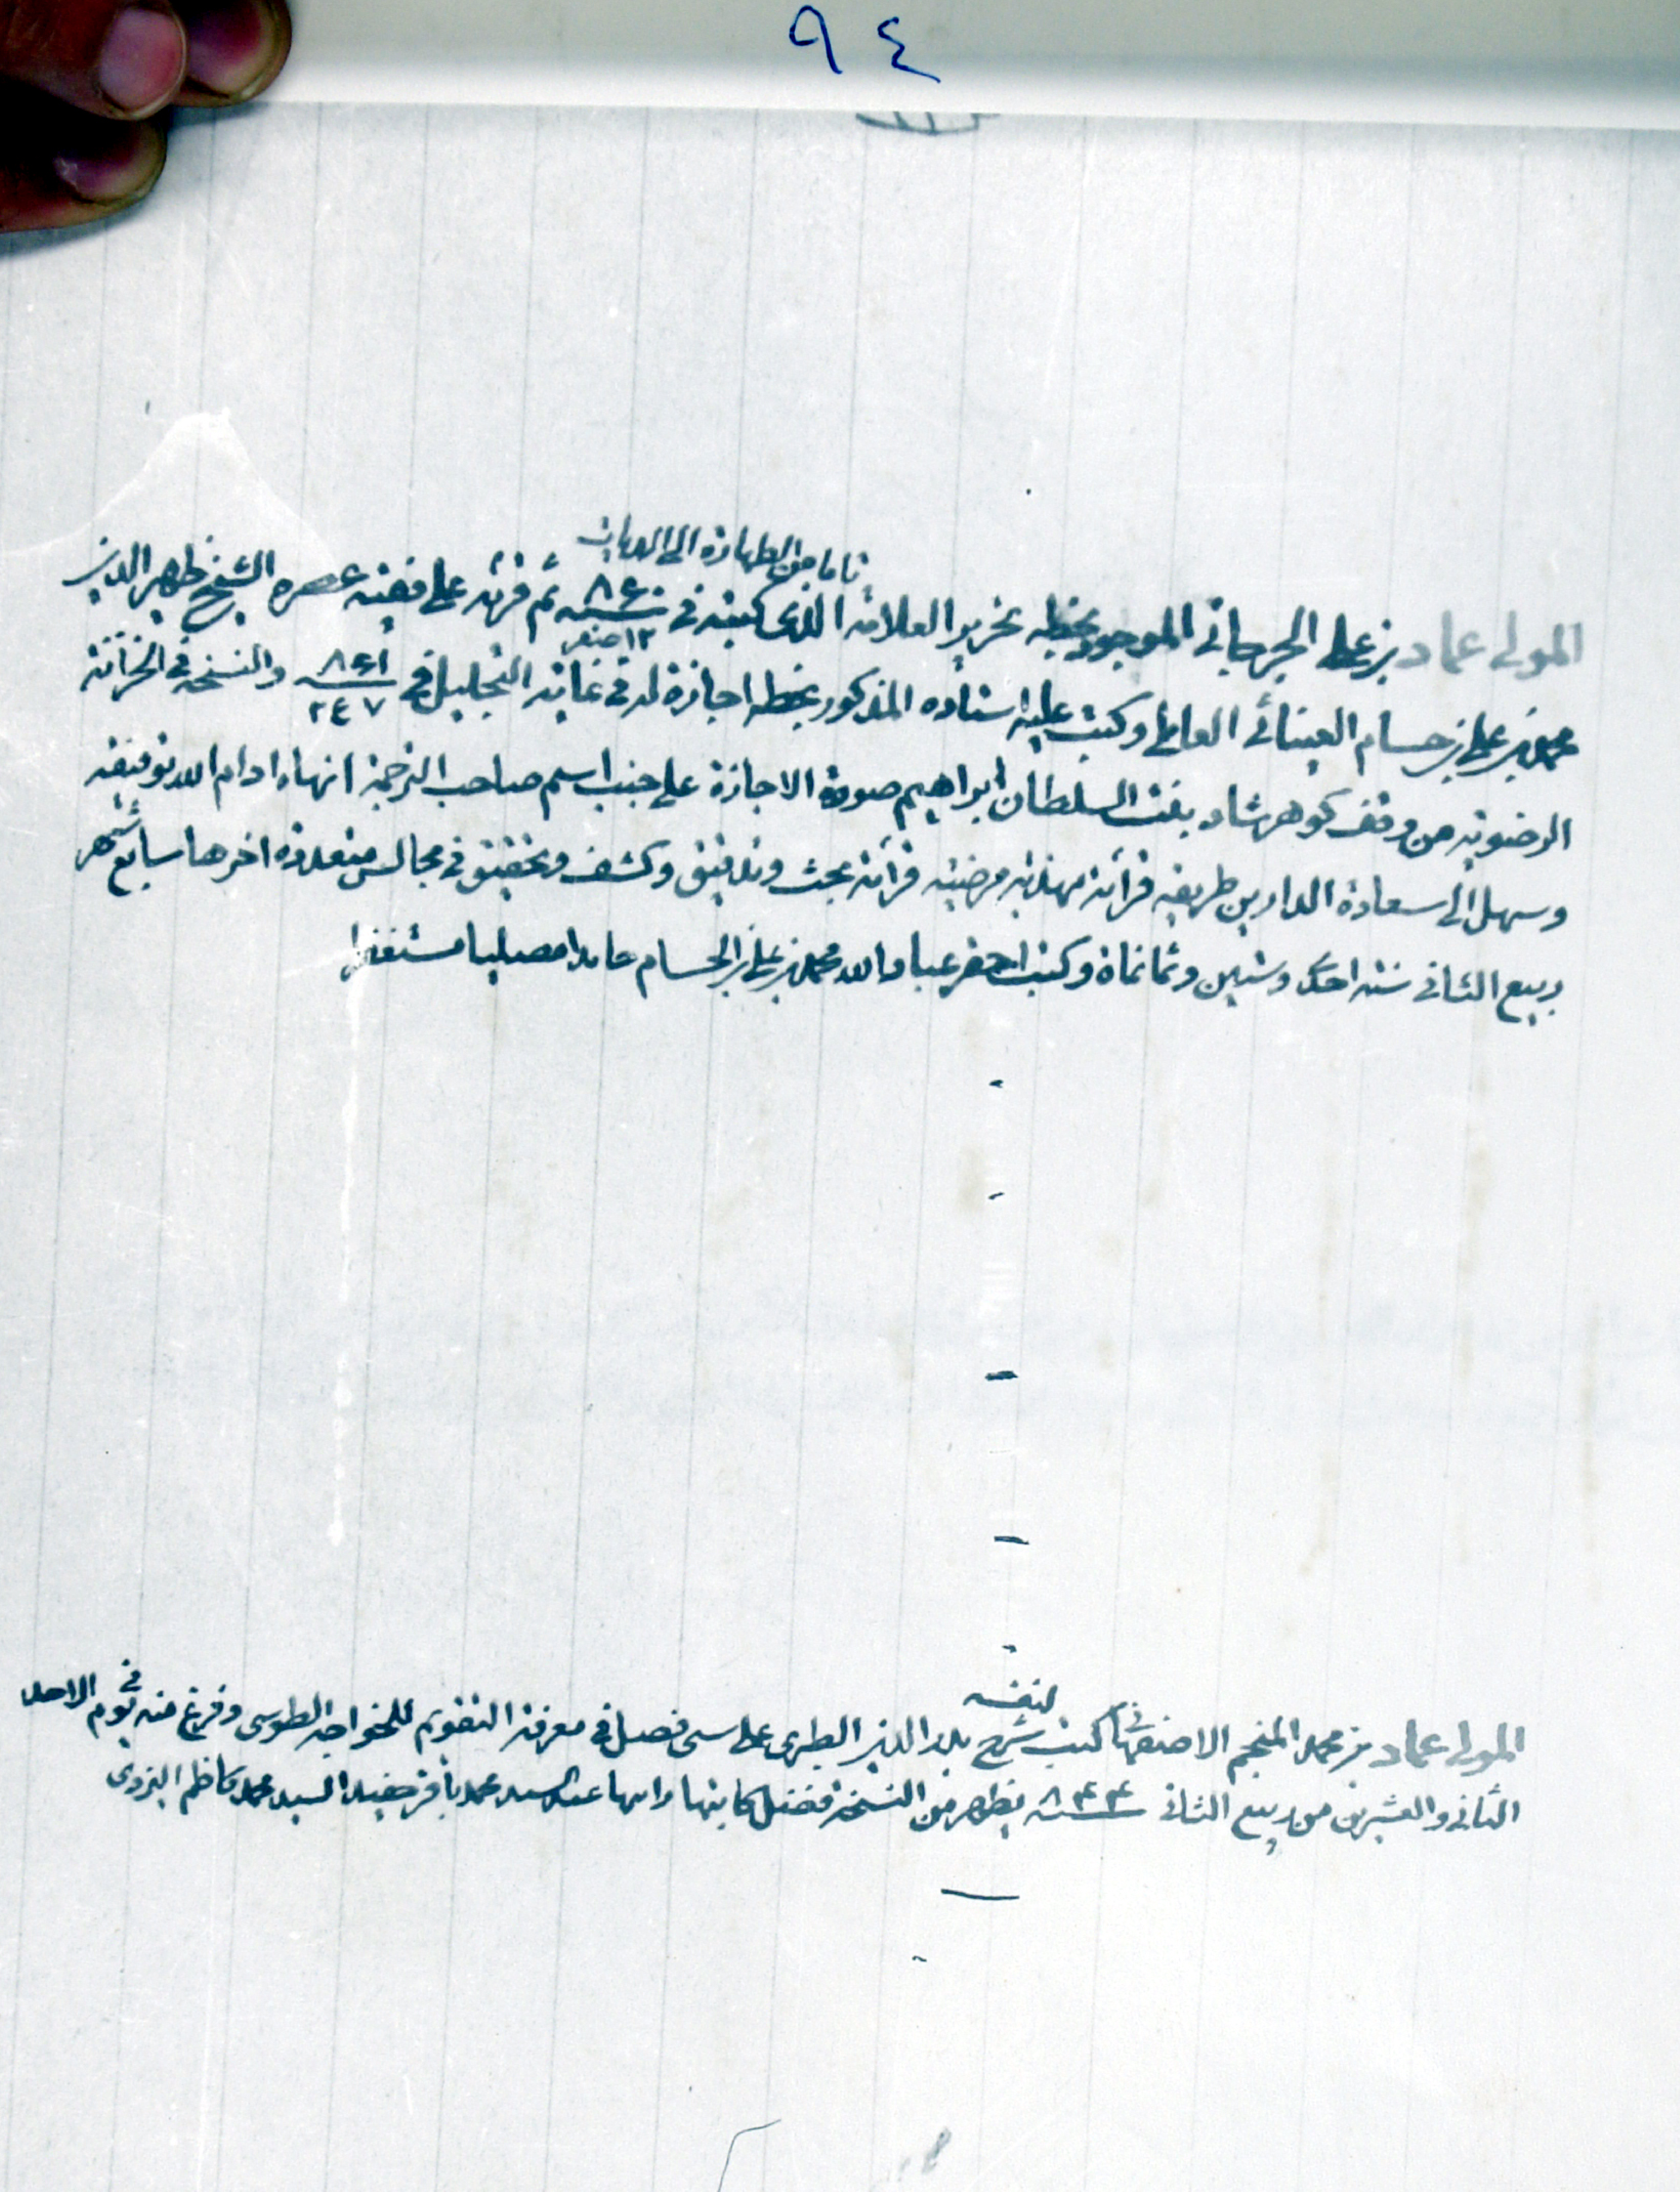 ٩٤
تاما من الطهارة الى الديات
المولى عماد بن على الجرجانى الموجود بخطه تحرير العلامة الذى كتبه فى ٨٦٠ ثم قرئه على فقيه عصره الشيخ ظهير الدين
١٢ صفر
محمد بن على بن حسام العينائى العاملى وكتب عليه استاده المذكور بخطه اجازة له فى غاية التجليل فى ٨٦١ والنسخة فى الخزانة
٢٤٧
الرضوية من وقف كوهرشاد بنت السلطان ابراهيم صورة الاجازة على جنب اسم صاحب الترجمة انهاه ادام الله توفيقه
وسهل الى سعادة الدارين طريقه قرائة مهذبة مرضية قرائة بحث وتدقيق وكشف وتحقيق فى مجالس متعددة اخرها سابع شهر
ربيع الثانى سنة احدى وستين وثمانماة وكتب احقر عباد الله محمد بن على بن الحسام حامدا مصليا مستغفرا
لنفسه
المولى عماد بن محمد المنجم الاصفهانى كتب شرح بدر الدين الطبرى على سى فصل فى معرفة التقويم للخواجه الطوسى وفرغ منه فى يوم الاحد
الثانى والعشرين من ربيع الثانى ٨٤٤ يظهر من النسخة فضل كاتبها رايتها عند السيد محمد باقر حفيد السيد محمد كاظم اليزدى